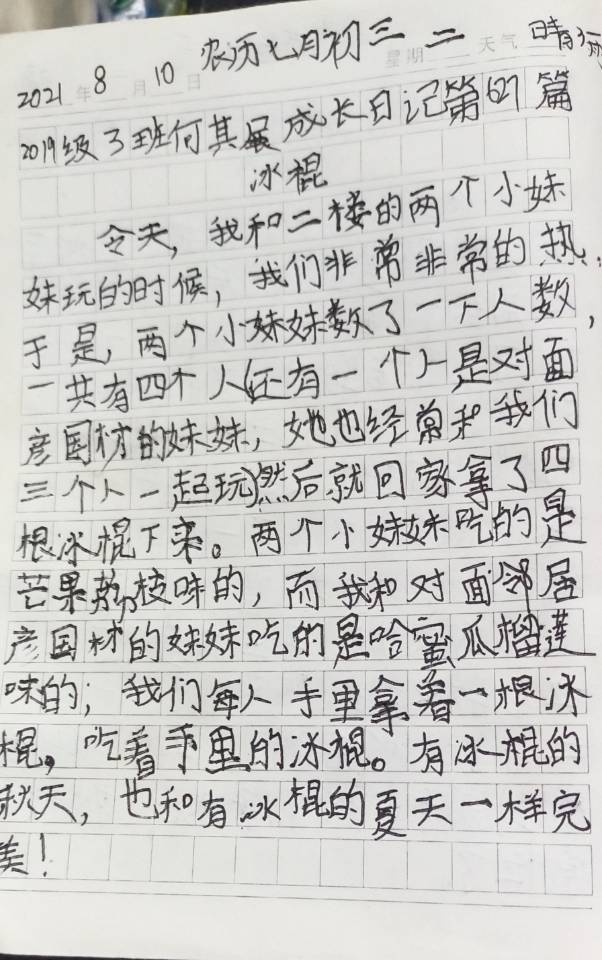 农历七月初三
2021年8月10日 星期二 天气 晴
2019级3班何其展成长日记第627篇
冰棍
今天，我和二楼的两个小妹
妹玩的时候，我们非常非常的热，
于是，两个小妹妹数了一下人数，
一共有四个人(还有一个人是对面
彦国材的妹妹，她也经常和我们
三个人一起玩)然后就回家拿了四
根冰棍下来。两个小妹妹吃的是
芒果荔枝味的，而我和对面邻居
彦国材的妹妹吃的是哈蜜瓜榴莲
味的；我们每人手里拿着一根冰
棍，吃着手里的冰棍。有冰棍的
秋天，也和有冰棍的夏天一样完
美！